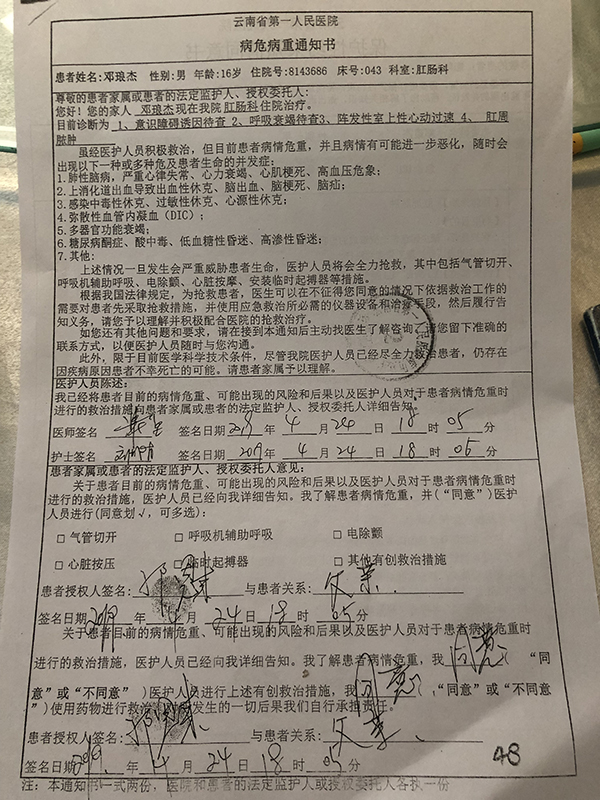 云南省第一人民医院
病危病重通知书
患者姓名:邓琅杰 性别:男 年龄:16岁 住院号:8143686 床号:043 科室:肛肠科
尊敬的患者家属或患者的法定监护人、授权委托人:
您好! 您的家人 邓琅杰 现在我院 肛肠科 住院治疗。
目前诊断为 1、意识障碍诱因待查 2、呼吸衰竭待查3、阵发性室上性心动过速 4、 肛周
脓肿
虽经医护人员积极救治,但目前患者病情危重,并且病情有可能进一步恶化,随时会
出现以下一种或多种危及患者生命的并发症:
1.肺性脑病,严重心律失常、心力衰竭、心肌梗死、高血压危象;
2.上消化道出血导致出血性休克、脑出血、脑梗死、脑疝;
3.感染中毒性休克、过敏性休克、心源性休克;
4.弥散性血管内凝血(DIC);
5.多器官功能衰竭;
6.糖尿病酮症、酸中毒、低血糖性昏迷、高渗性昏迷;
7.其他:
上述情况一旦发生会严重威胁患者生命,医护人员将会全力抢救,其中包括气管切开、
呼吸机辅助呼吸、电除颤、心脏按摩、安装临时起搏器等措施。
根据我国法律规定,为抢救患者,医生可以在不征得您同意的情况下依据救治工作的
需要对患者先采取抢救措施,并使用应急救治所必需的仪器设备和治疗手段,然后履行告
知义务,请您予以理解并积极配合医院的抢救治疗。
如您还有其他问题和要求,请在接到本通知后主动找医生了解咨询,请您留下准确的
联系方式,以便医护人员随时与您沟通。
此外,限于目前医学科学技术条件,尽管我院医护人员已经尽全力救治患者,仍存在
因疾病原因患者不幸死亡的可能。请患者家属予以理解。
医护人员陈述:
我已经将患者目前的病情危重、可能出现的风险和后果以及医护人员对于患者病情危重时
进行的救治措施向患者家属或患者的法定监护人、授权委托人详细告知。
医师签名 签名日期2019 年 4 月 24 日 18 时 05 分
护士签名 签名日期2019 年 4 月 24 日 18 时 05 分
患者家属或患者的法定监护人、授权委托人意见:
关于患者目前的病情危重、可能出现的风险和后果以及医护人员对于患者病情危重时
进行的救治措施,医护人员已经向我详细告知。我了解患者病情危重,并(“同意”)医护
人员进行(同意划√,可多选):
□ 气管切开 □ 呼吸机辅助呼吸 □ 电除颤
□ 心脏按压 □ 临时起搏器 □ 其他有创救治措施
患者授权人签名: 与患者关系: 父亲
签名日期2019 年 4 月 24 日 18 时 05 分
关于患者目前的病情危重、可能出现的风险和后果以及医护人员对于患者病情危重时
进行的救治措施,医护人员已经向我详细告知。我了解患者病情危重,我 同意 ( “同
意”或“不同意” )医护人员进行上述有创救治措施,我 同意 (“同意”或“不同意
”)使用药物进行救治 发生的一切后果我们自行承担责任。
患者授权人签名: 与患者关系: 父亲
签名日期2019 年 4 月 24 日 18 时 05 分
48
注: 本通知书一式两份,医院和患者的法定监护人或授权委托人各执一份